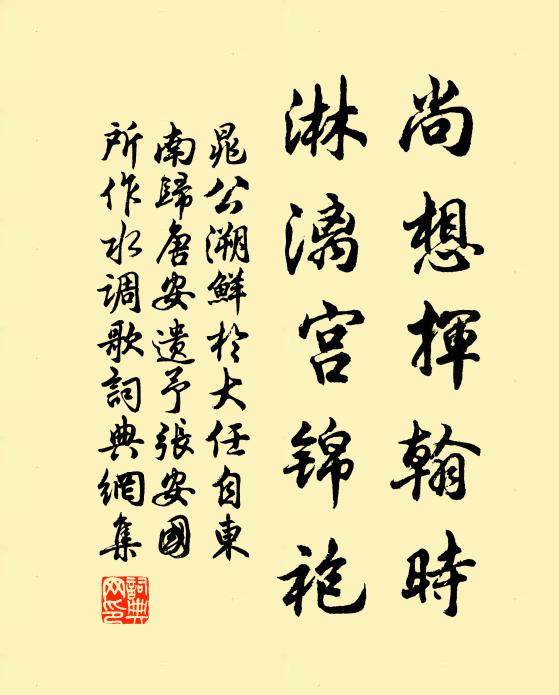 尚想揮翰時
淋漓宫锦袍
晁公溯鮮於大任自東
南歸唐安遺予張安國
所作水调歌詞典網集
詞典网印